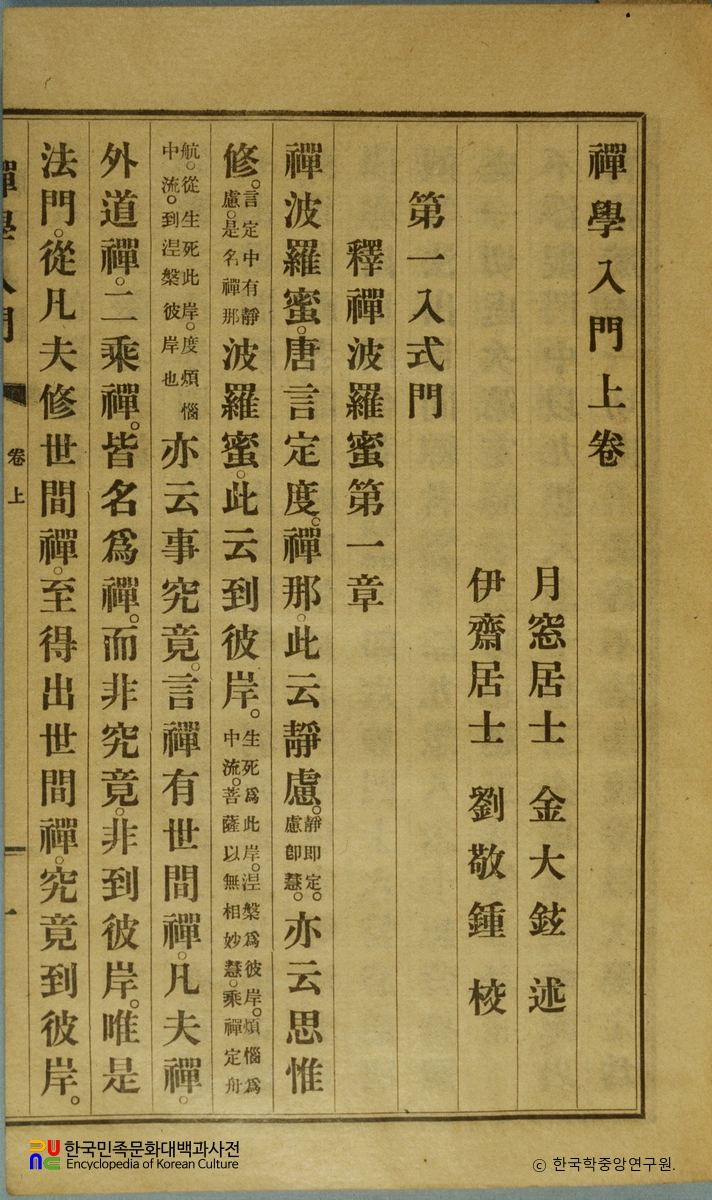 禪學入門上卷
月窓居士 金大鉉 述
伊齋居士 劉敬鍾 校
第一入式門
釋禪波羅蜜第一章
禪波羅蜜。唐言定度。禪那。此云靜慮。靜即定。慮卽慧。亦云思惟
修。言定中有靜慮。是名禪那波羅蜜。此云到彼岸。生死爲此岸。涅槃爲彼岸。煩惱爲中流。菩薩以無相妙慧。乘禪定舟
航。從生死此岸。度煩惱中流。到涅槃彼岸也亦云事究竟。言禪有世間禪。凡夫禪。
外道禪。二乘禪。皆名爲禪。而非究竟。非到彼岸。唯是
法門。從凡夫修世間禪。至得出世間禪。究竟到彼岸。
禪學入門 卷上 一
한국민족문화대백과사전
Encyclopedia of Korean Culture
ⓒ 한국학중앙연구원.